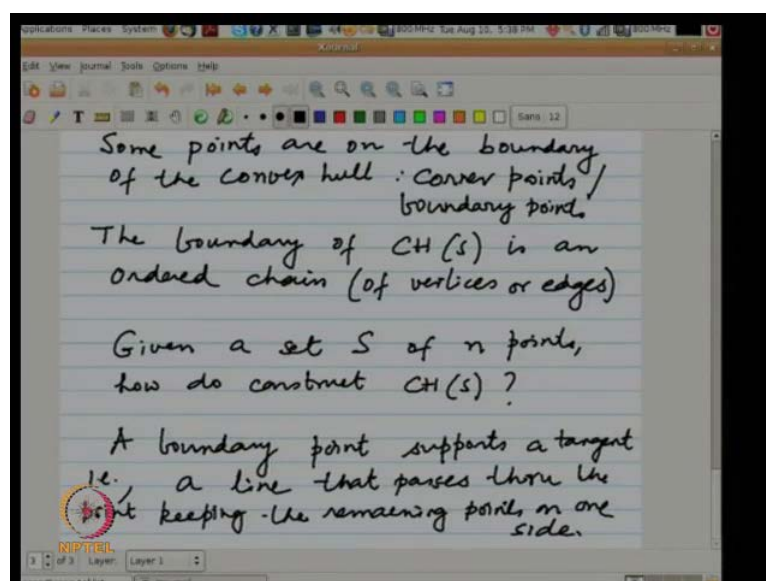 Applications Places System 800 MHz Tue Aug 10, 5:38 PM 800 MHz
Xournal
Edit View Journal Tools Options Help
T Sans 12
Some points are on the boundary
of the convex hull : corner points /
boundary point.
The boundary of CH(S) is an
ordered chain (of vertices or edges)
Given a set S of n points,
how do construct CH(S) ?
A boundary point supports a tangent
i.e., a line that passes thru the
point keeping the remaening points on one
side.
NPTEL
3 of 3 Layer: Layer 1